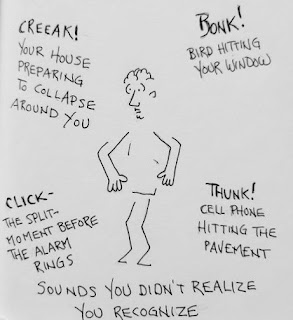 CREEAK!
YOUR HOUSE
PREPARING
TO COLLAPSE
AROUND YOU
BONK!
BIRD HITTING
YOUR WINDOW
CLICK-
THE SPLIT-
MOMENT BEFORE
THE ALARM
RINGS
THUNK!
CELL PHONE
HITTING THE
PAVEMENT
SOUNDS YOU DIDN'T REALIZE
YOU RECOGNIZE